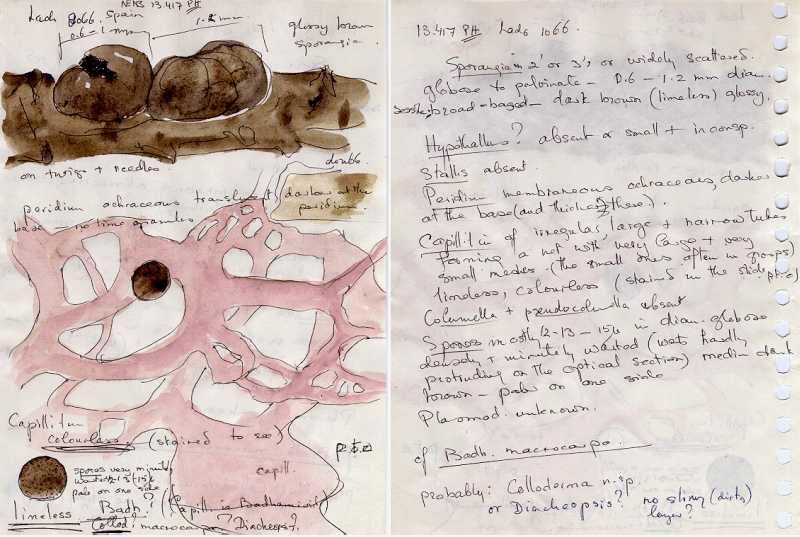 NENB 13.417 PH
Lado 1066. Spain
0.6 - 1 mm
1.2 mm
glossy brown
sporangia.
on twigs + needles
double.
peridium ochraceous translucent, darker at the
base - no lime granules
peridium.
Capillitium
colourless. (stained to see)
capill.
spores very minutely
warted 13-15µ
pale on one side
limeless
Badh? (Capill. is Badhamioid)
Collod? macrocarpa? Diacheopsis?
13.417 PH Lado 1066.
Sporangia in 2' or 3', or widely scattered.
globose to pulvinate - 0.6 - 1.2 mm diam.
sessile, broad-based - dark brown (limeless) glossy.
Hypothallus? absent or small + inconsp.
Stalks absent.
Peridium membraneous ochraceous, darker
at the base (and thicker there).
Capillit. of irregular, large + narrow tubes
forming a net with very large + very
small meshes. (the small ones often in groups)
limeless, colourless (stained in the slide)
Columella + pseudocolumella absent
Spores mostly 12-13 - 15µ in diam. globose
densely + minutely warted (warts hardly
protruding on the optical section) medium dark
brown - pale on one side
Plasmod. unknown.
cf Badh. macrocarpa.
probably: Colloderma n.sp.
or Diacheopsis? no slimy (dirty)
layer?